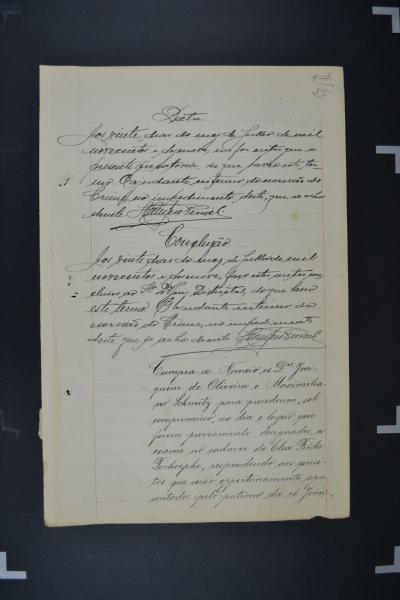 Data.
Aos vinte dias do mez de Julho de mil
novecentos e dezenove, me foi entregue a
presente
mo. O ajudante interino do escrivão do
Crime, no impedimento deste, que se acha
doente
Conclusão
Aos vinte dias do mez de Julho de mil
novecentos e dezenove, faço estes autos con
clusos ao Sr. Dr. Juiz Districtal, do que lavro
este termo. O ajudante interino do
escrivão do Crime, no impedimento
deste que se acha doente
Cumpra-se. Nomeio os Drs. Joa
quim de Oliveira e Maximilia
no Schmitz para procederem, sob
compromisso, no dia e lugar que
forem previamente designados, a
exame no cadaver de Elsa Frida
respondendo aos quesi
tos que serão opportunamente apre
sentados pelo patrono da ré